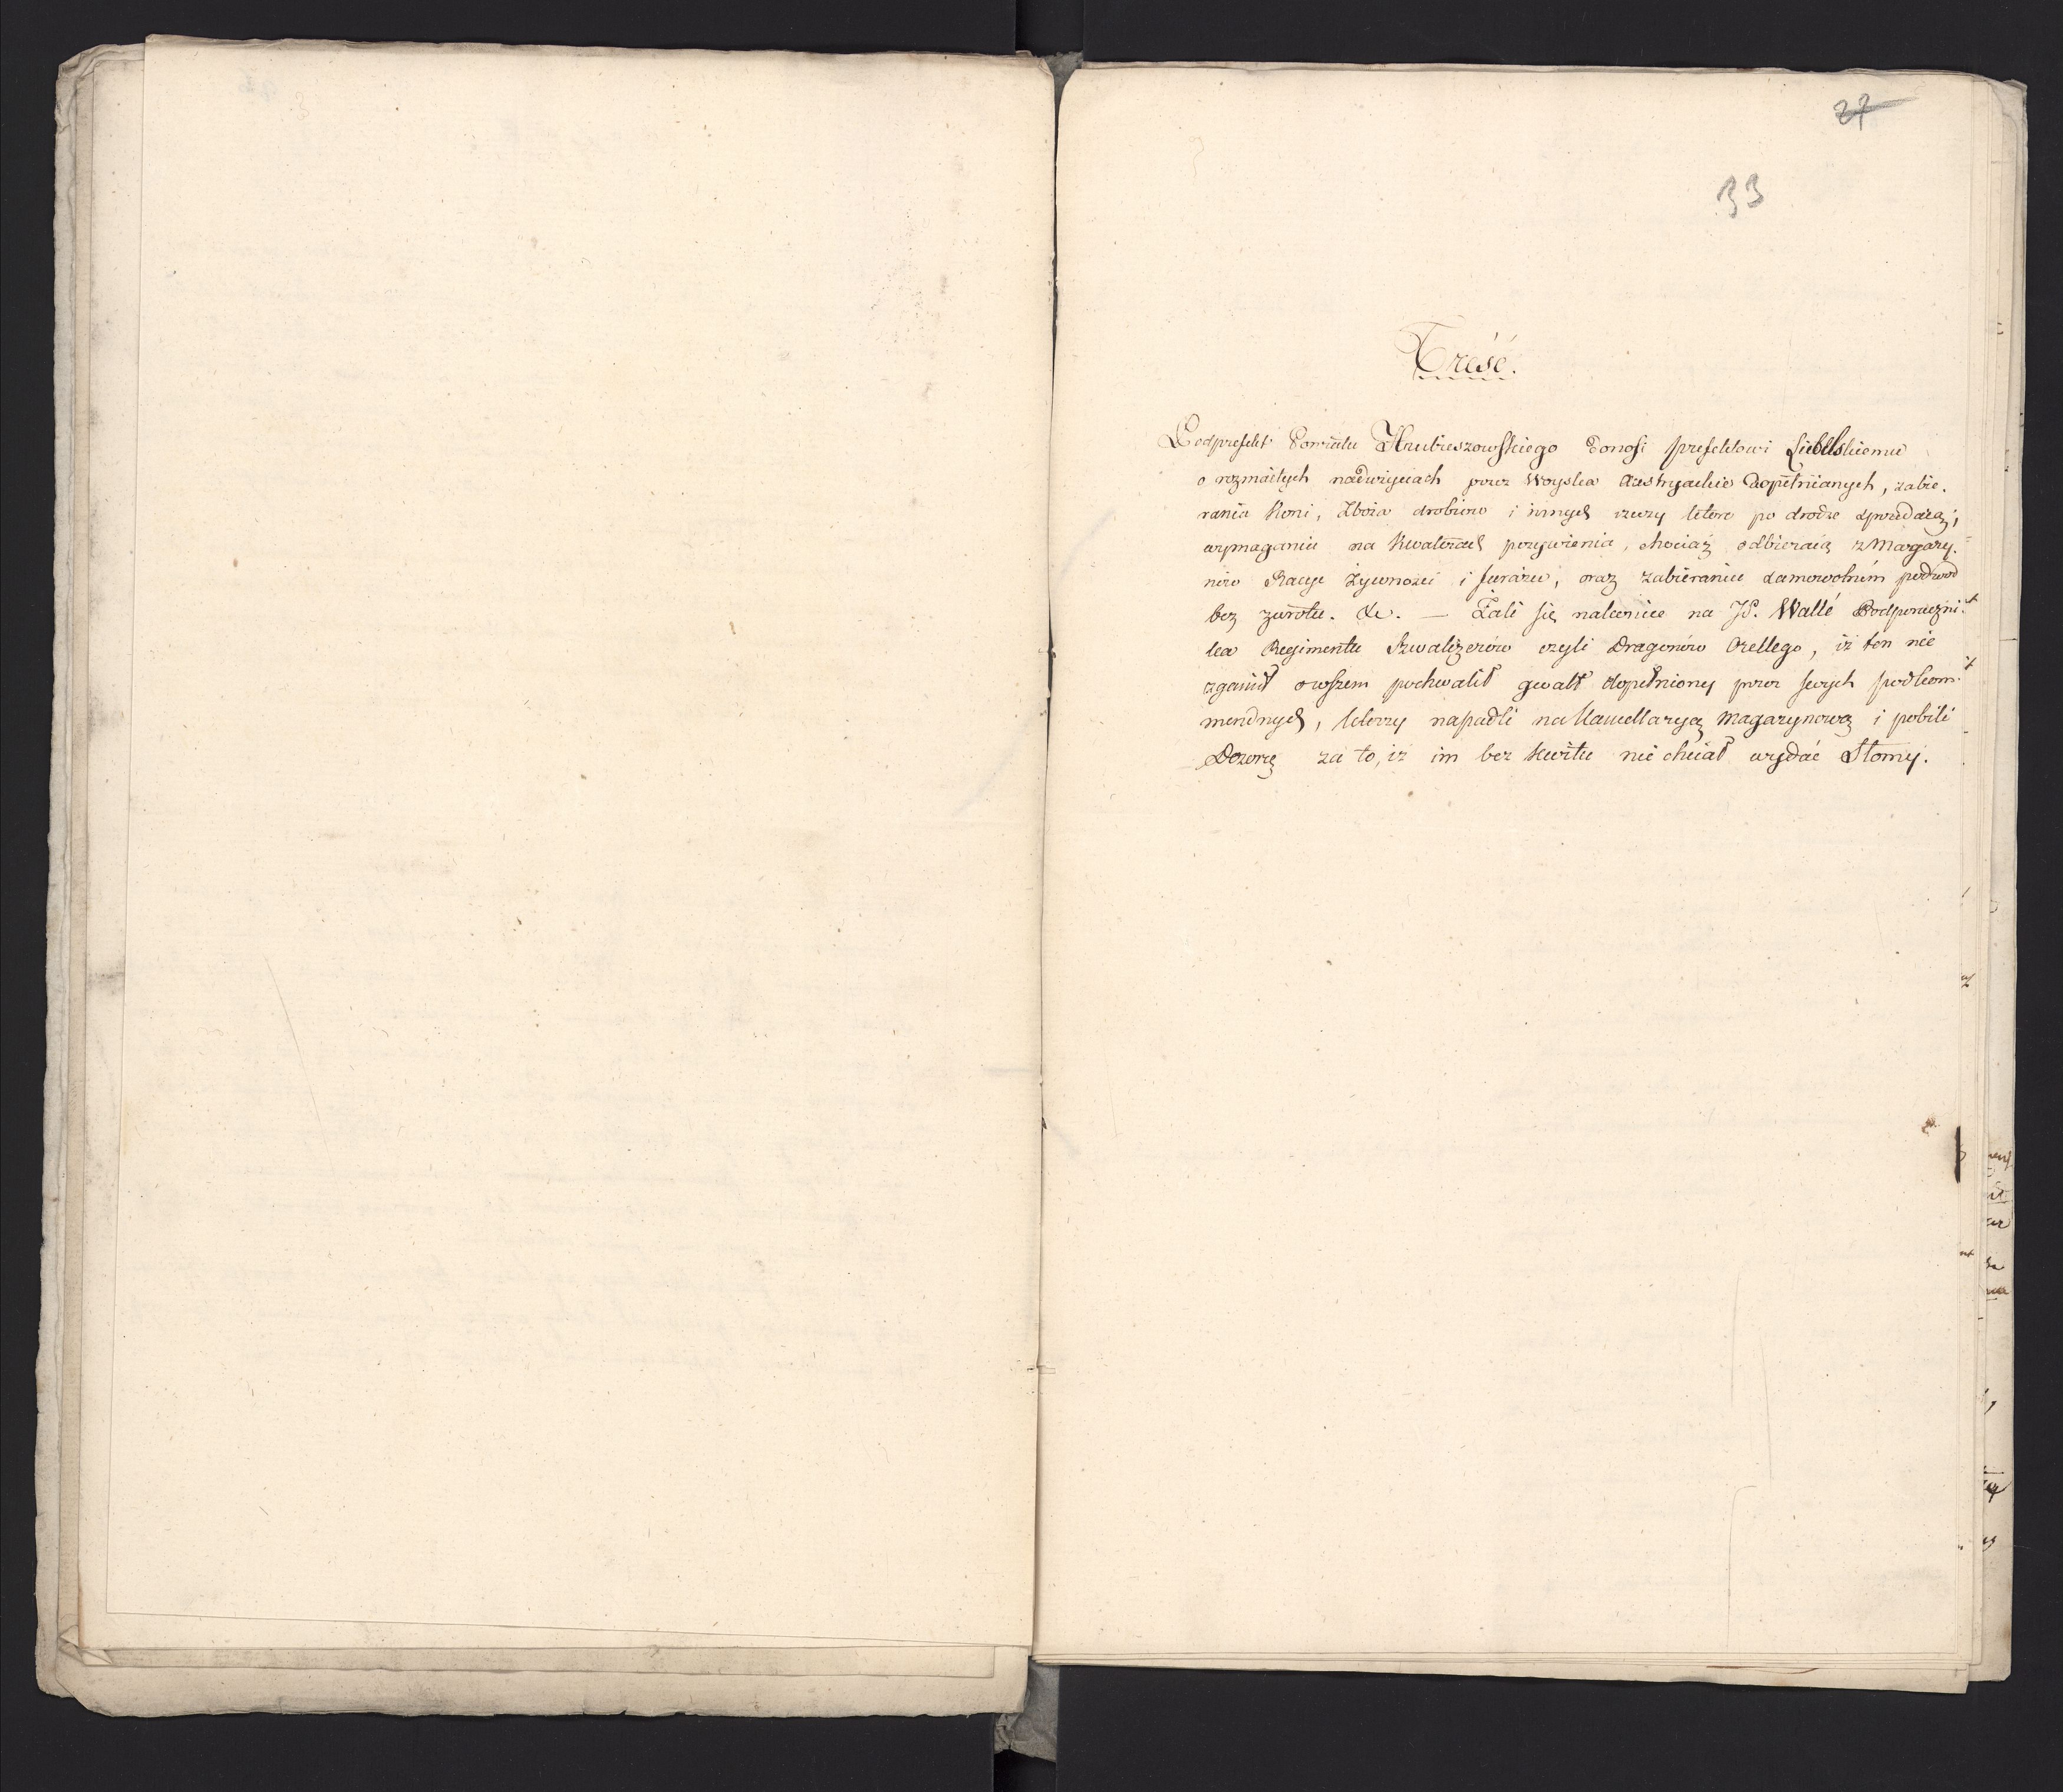 27
33
Treść.
Podprefekt Powiatu Hrubieszowskiego donosi prefektowi Lubelskiemu
o rozmaitych nadużyciach przez Woyska Austryackie dopełnianych, zabie.
rania Koni, Zboża drobiuw i innych rzeczy które po drodze sprzedaią,
wymaganiu na Kwaterach pożywienia, chociaż odbieraią z Magazy-
nów Racye żywności i furażu, oraz zabieraniu samowolném podwod
bez zwrotu. &c. — Żali się nakoniec na JP. Wallé Podporuczni-
ka Regimentu Szwaliżerów czyli Dragonów Orellego, iż ten nie
zganił owszem pochwalił gwałt dopełniony przez swych podkom-
mendnych, którzy napadli na Kancellaryą Magazynową i pobili
Dozorcę za to, iż im bez Kwitu nie chciał wydać Słomy.